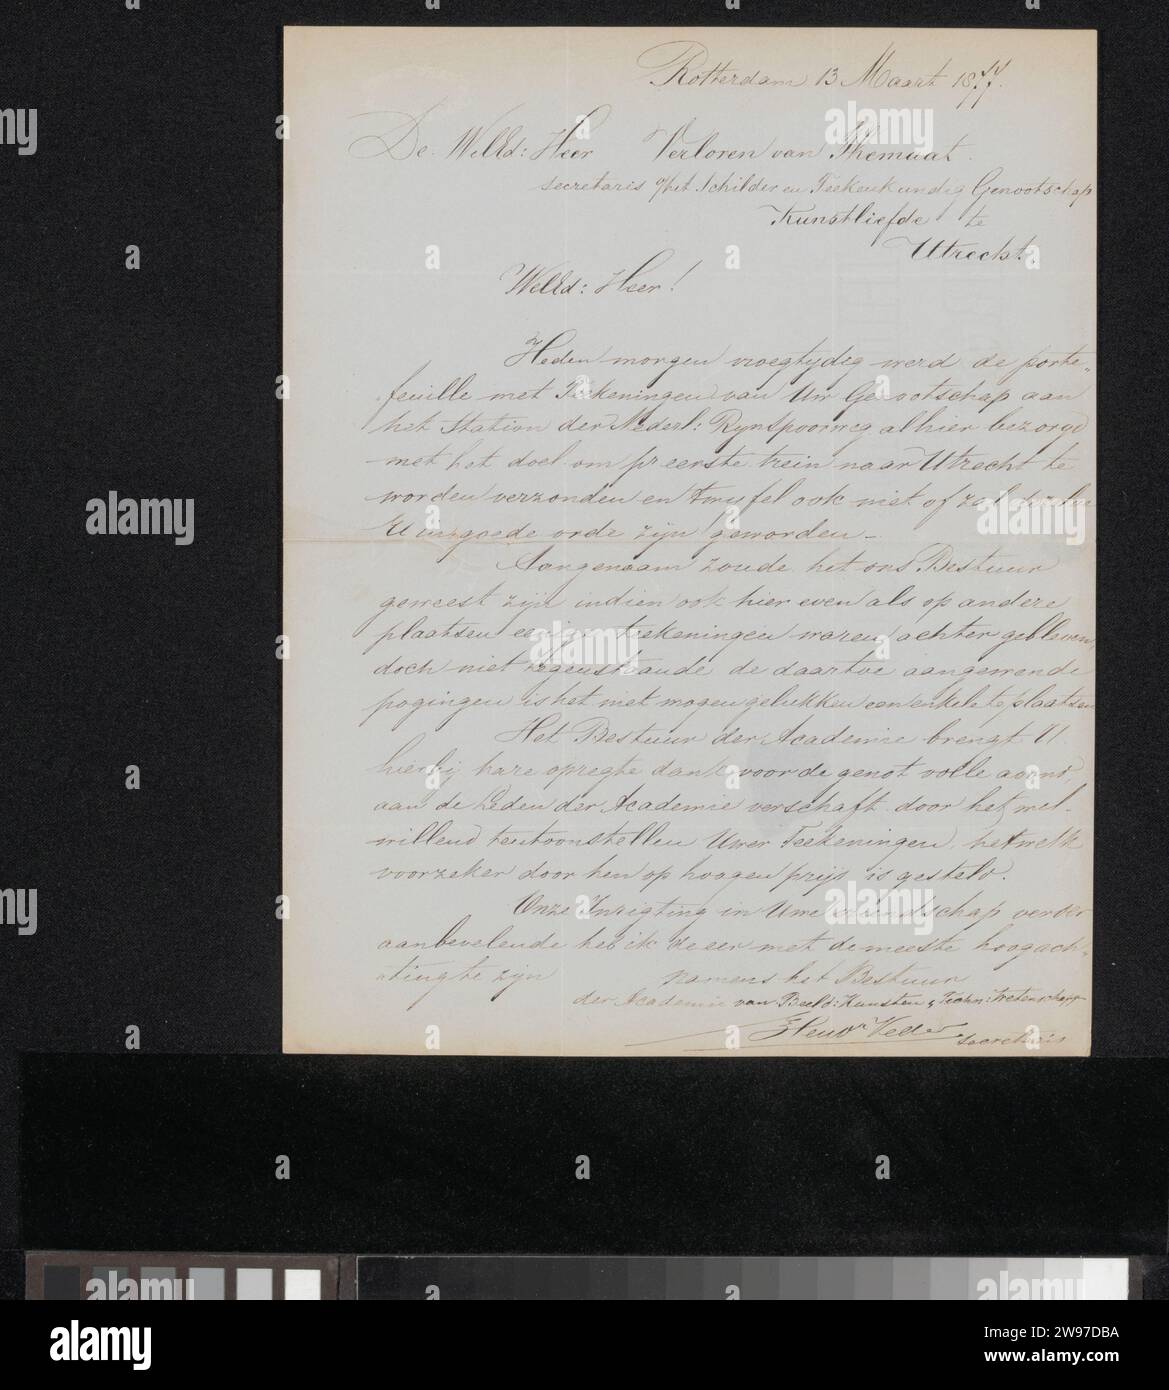 Rotterdam 13 Maart 1877.
De WelEd: Heer Verloren van Themaat.
secretaris v/het Schilder en Teekenkundig Genootschap
Kunstliefde te
Utrecht.
WelEd: Heer!
Heden morgen vroegtydig werd de porte-
feuille met Teekeningen van Uw Genootschap aan
het Station der Nederl: Rynspoorweg alhier bezorgd
met het doel om pr eerste trein naar Utrecht te
worden verzonden en twyfel ook niet of zal dezelve
U in goede orde zyn geworden _
Aangenaam zoude het ons Bestuur
geweest zyn indien ook hier even als op andere
plaatsen eenige teekeningen waren achter gebleven,
doch niet tegenstaande de daartoe aangewende
pogingen is het niet mogen gelukken een enkele te plaatsen
Het Bestuur der Academie brengt U
hierby hare opregte dank voor de genot volle avond,
aan de Leden der Academie verschaft door het wel-
willend tentoonstellen Uwer Teekeningen, hetwelk
voorzeker door hen op hoogen prys is gesteld.
Onze Inrigting in Uwe vriendschap verder
aanbevelende heb ik de eer met de meeste hoogach-
ting te zyn namens het Bestuur
der Academie van Beeld: Kunsten & Techn: Wetenschapp
Secretaris
alamy
Image ID: 2W97DBA
www.alamy.com